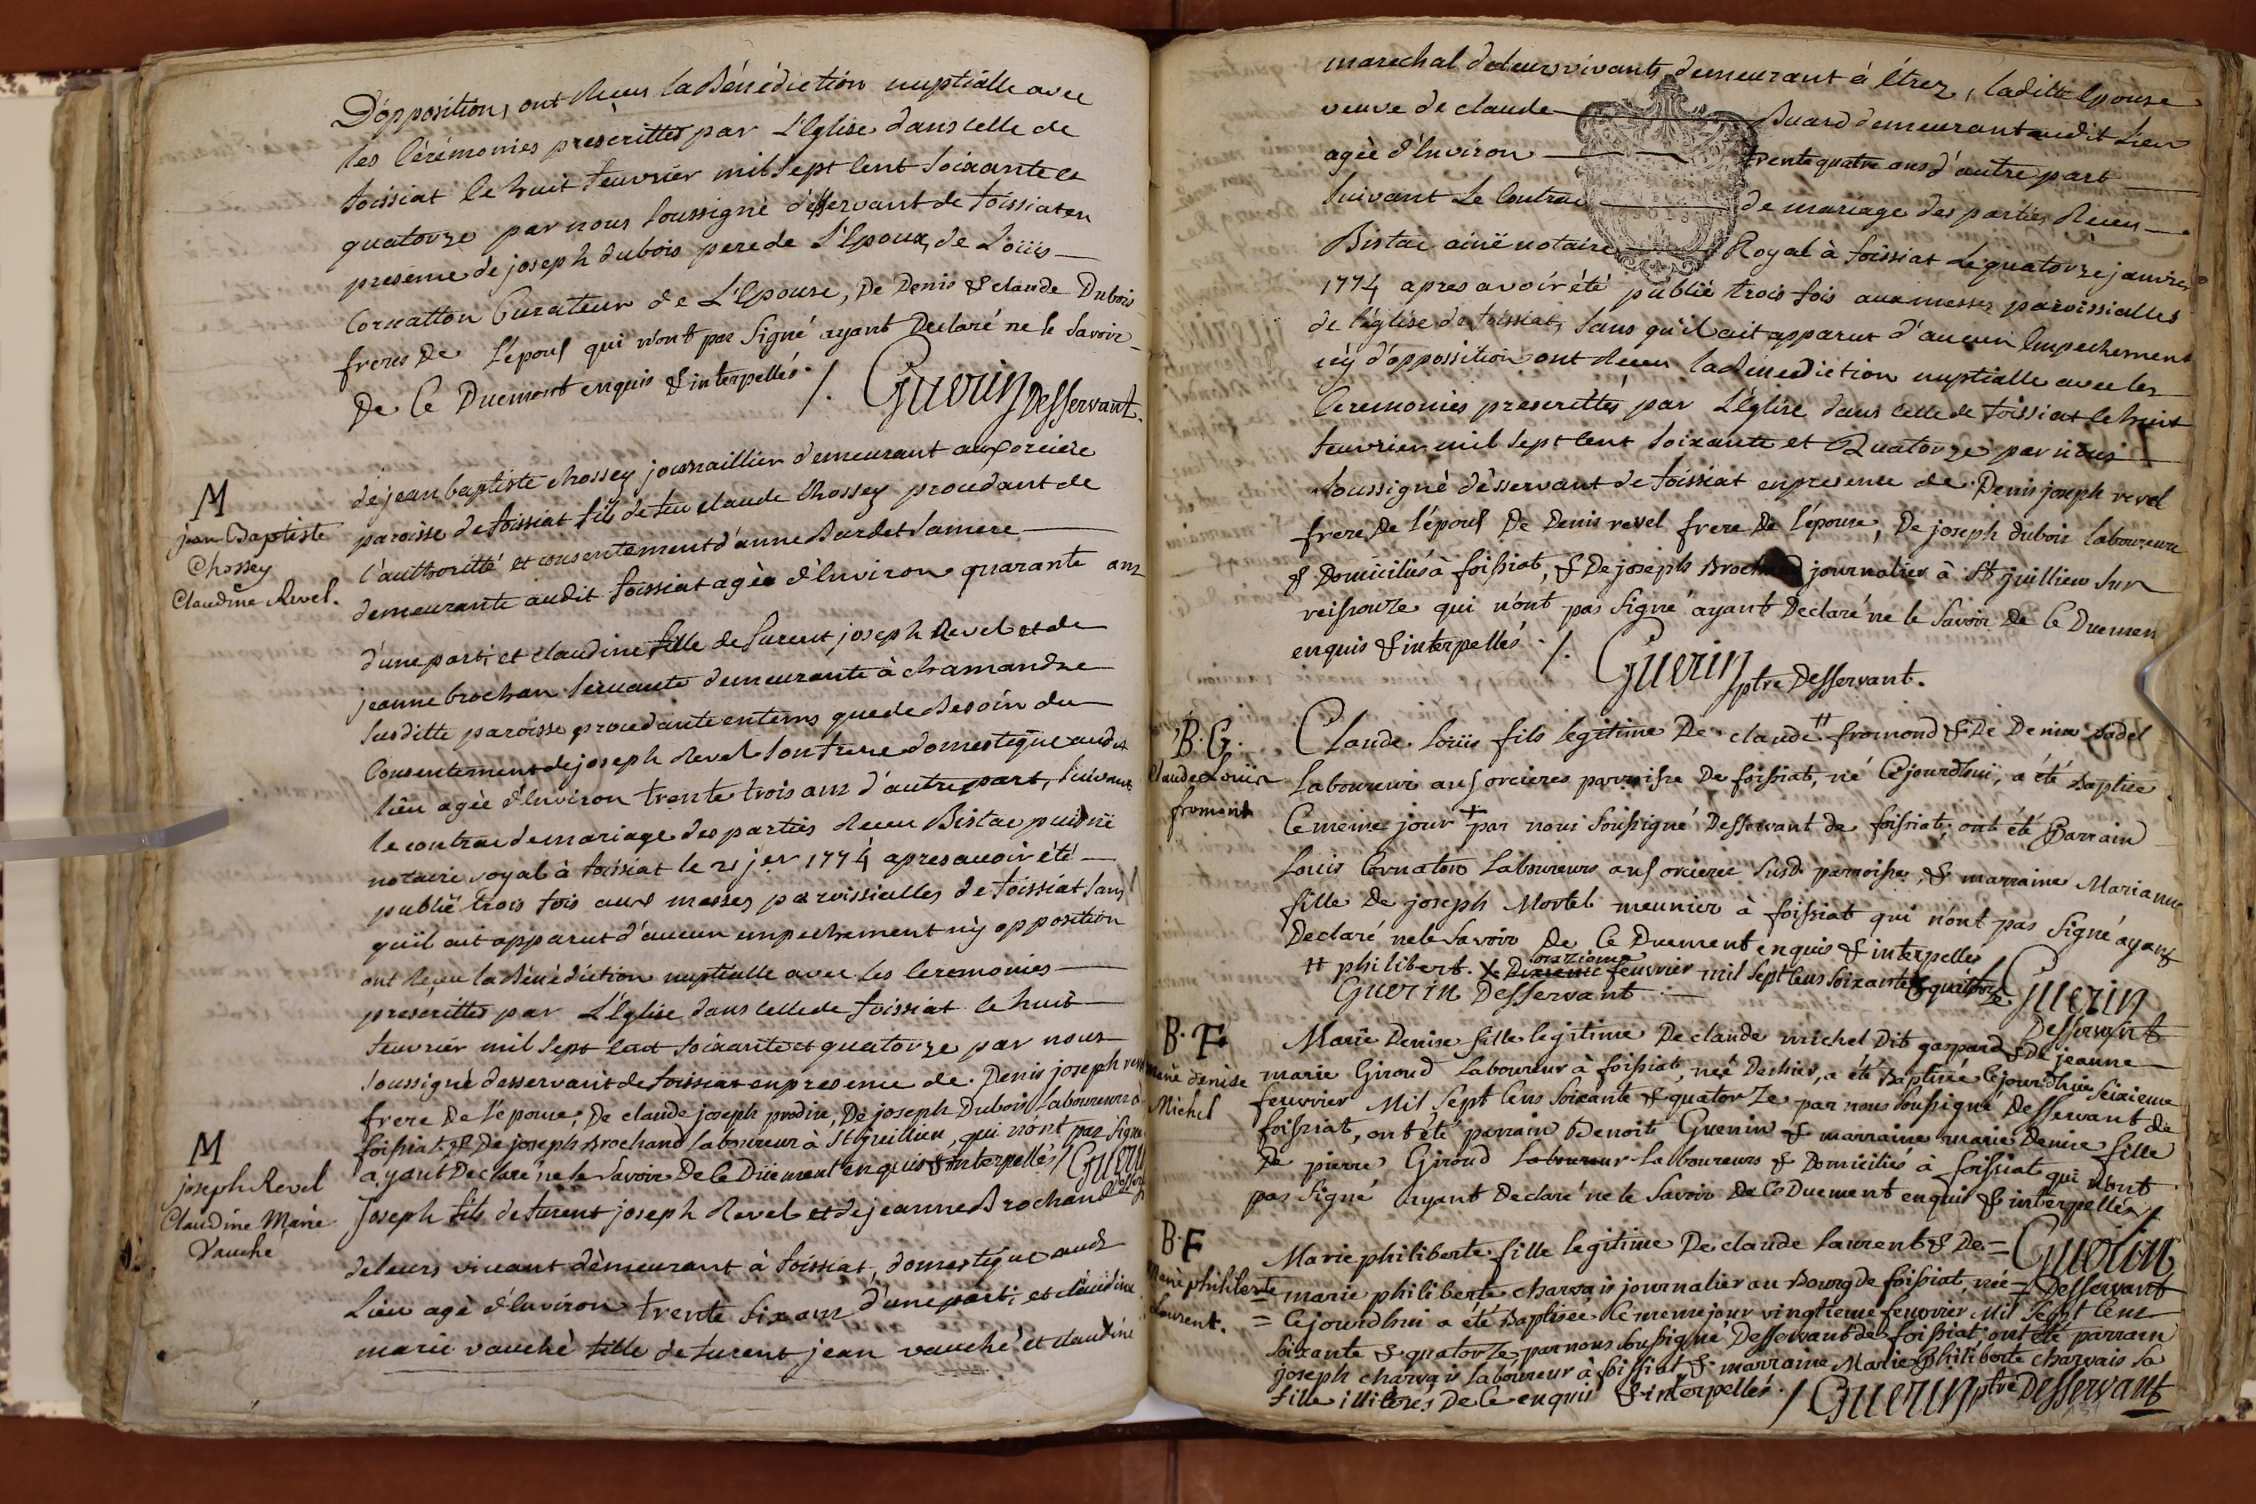 D'opposition, ont Recu la Bénédiction nuptialle avec
les Cérémonies prescrittes par L'Eglise dans celle de
foissiat le huit feuvrier mil sept cent soixante et
quatorze par nous soussigné désservant de foissiat en
presence de joseph dubois pere de L'Epoux, de Loüis
Cornatton Curateur de L'Epouse, De Denis & claude Dubois
freres De L'épous qui n'ont pas signé ayant Declaré ne le savoir
De Ce Duement enquis & interpellés ./. Guerin Desservant.
M
jean Baptiste
Chossey
Claudine Revel.
de jean baptiste chossey journaillier demeurant aux orciere
paroisse de foissiat fils de feu claude Chossey procedant de
l'authoritté et consentement d'anne Bardet sa mere
demeurante audit foissiat agée d'Environ quarante ans
d'une part; et claudine fille de furent joseph Revel et de
jeanne brochan servante demeurante à chamandre
susditte paroisse procedante en tems que de Besoin du
Consentement de joseph Revel son frere domestique audit
lieu agée d'Environ trente trois ans d'autre part, suivant
le contrac de mariage des parties Receu Bistac puisné
notaire royal à foissiat le 21 jer 1774 apres avoir été
publié trois fois aux messes paroissialles de foissiat sans
qu'il ait apparut d'aucun empechement n'y opposition
ont Reçeu la Bénédiction nuptialle avec les Ceremonies
prescrittes par L'Eglise dans celle de foissiat le huit
feuvrier mil sept cent soixante et quatorze par nous
soussigné desservant de foissiat en presence de Denis joseph revel
frere De l'epouse, De claude joseph prodin, De joseph Dubois Laboureurs à
foissiat & De joseph Brochand laboureur à St juillien, qui n'ont pas signé
ayant Declaré ne le savoir De Ce Duement enquis & interpellés / Guerin
M
joseph Revel
Claudine Marie
Vauche
Joseph fils de furent joseph Revel et de jeanne Brochand
de leurs vivant demeurant à foissiat, domestique audt
Lieu agé d'Environ trente six ans d'une part; et claudine
marie vauché fille de furent jean vauché et claudine
marechal de leurs vivants demeurant à étrez, laditte Epouse
veuve de claude Buard demeurant audit Lieu
agée d'Environ trente quatre ans d'autre part
suivant Le Contrac de mariage des parties Receu
Bistac ainé notaire Royal à foissiat Le quatorze janvier
1774 apres avoir été publié trois fois aux messes paroissialles
de l'église de foissiat, sans qu'il ait apparut d'aucun Empechement
n'y d'opposition ont Receu la Bénediction nuptialle avec les
Ceremonies prescrittes par L'Eglise dans celle de foissiat le huit
feuvrier mil sept cent soixante et Quatorze par nous
soussigné désservant de foissiat en presence de Denis joseph revel
frere De l'épous De Denis revel frere De l'épouse, De joseph dubois laboureurs
& Domiciliés à foissiat, & De joseph Brochand journalier à St juillien sur
reissouze qui n'ont pas signé ayant Declaré ne le savoir De Ce Duemen
enquis & interpellés ./. Guerin ptre Desservant.
B. G.
Claude Loüis
fromont
Claude Loüis fils legitime De claude ++ fromond & De Denise Badel
Laboureur aus orcieres parroisse De foissiat, né Cejourdhui, a été Baptisé
Ce meme jour + par nous soussigné Desservant de foissiat; ont été Parrain
Louis Cornaton Laboureur aus orcieres susd. parroisse, & marraine Marianne
fille De joseph Mortel meunier à foissiat qui n'ont pas signé ayant
Declaré ne le savoir De Ce Duement enquis & interpellés
++ philibert. X Dixieme onzieme feuvrier mil sept cens soixante & quatorze Guerin
Guerin Desservant Desservant
B. F.
Marie denise
Michel
Marie Denise fille legitime De claude michel Dit gaspard & De jeanne
marie Giroud Laboureur à foissiat, née Dechier, a été Baptisée Cejourdhui seixieme
feuvrier Mil sept cens soixante & quatorze par nous soussigné Desservant de
foissiat, ont été parrain Benoit Guenin & marraine marie Denise fille
De pierre Giroud Laboureur Laboureurs & Domiciliés à foissiat qui n'ont
pas signé ayant Declaré ne le savoir De Ce Duement enquis & interpellés /
B. F
Marie philiberte
Laurent.
Marie philiberte fille legitime De claude Laurent & De = Guerin
= marie philiberte charvais journalier au Bourg de foissiat, née = Desservant
= Cejourdhui a été Baptisée Ce meme jour vingtieme feuvrier Mil sept cens
soixante & quatorze par nous soussigné Desservant de foissiat; ont été parrain
joseph charvais laboureur à foissiat & marraine Marie philiberte charvais sa
fille illiterés De Ce enquis & interpellés. / Guerin ptre Desservant